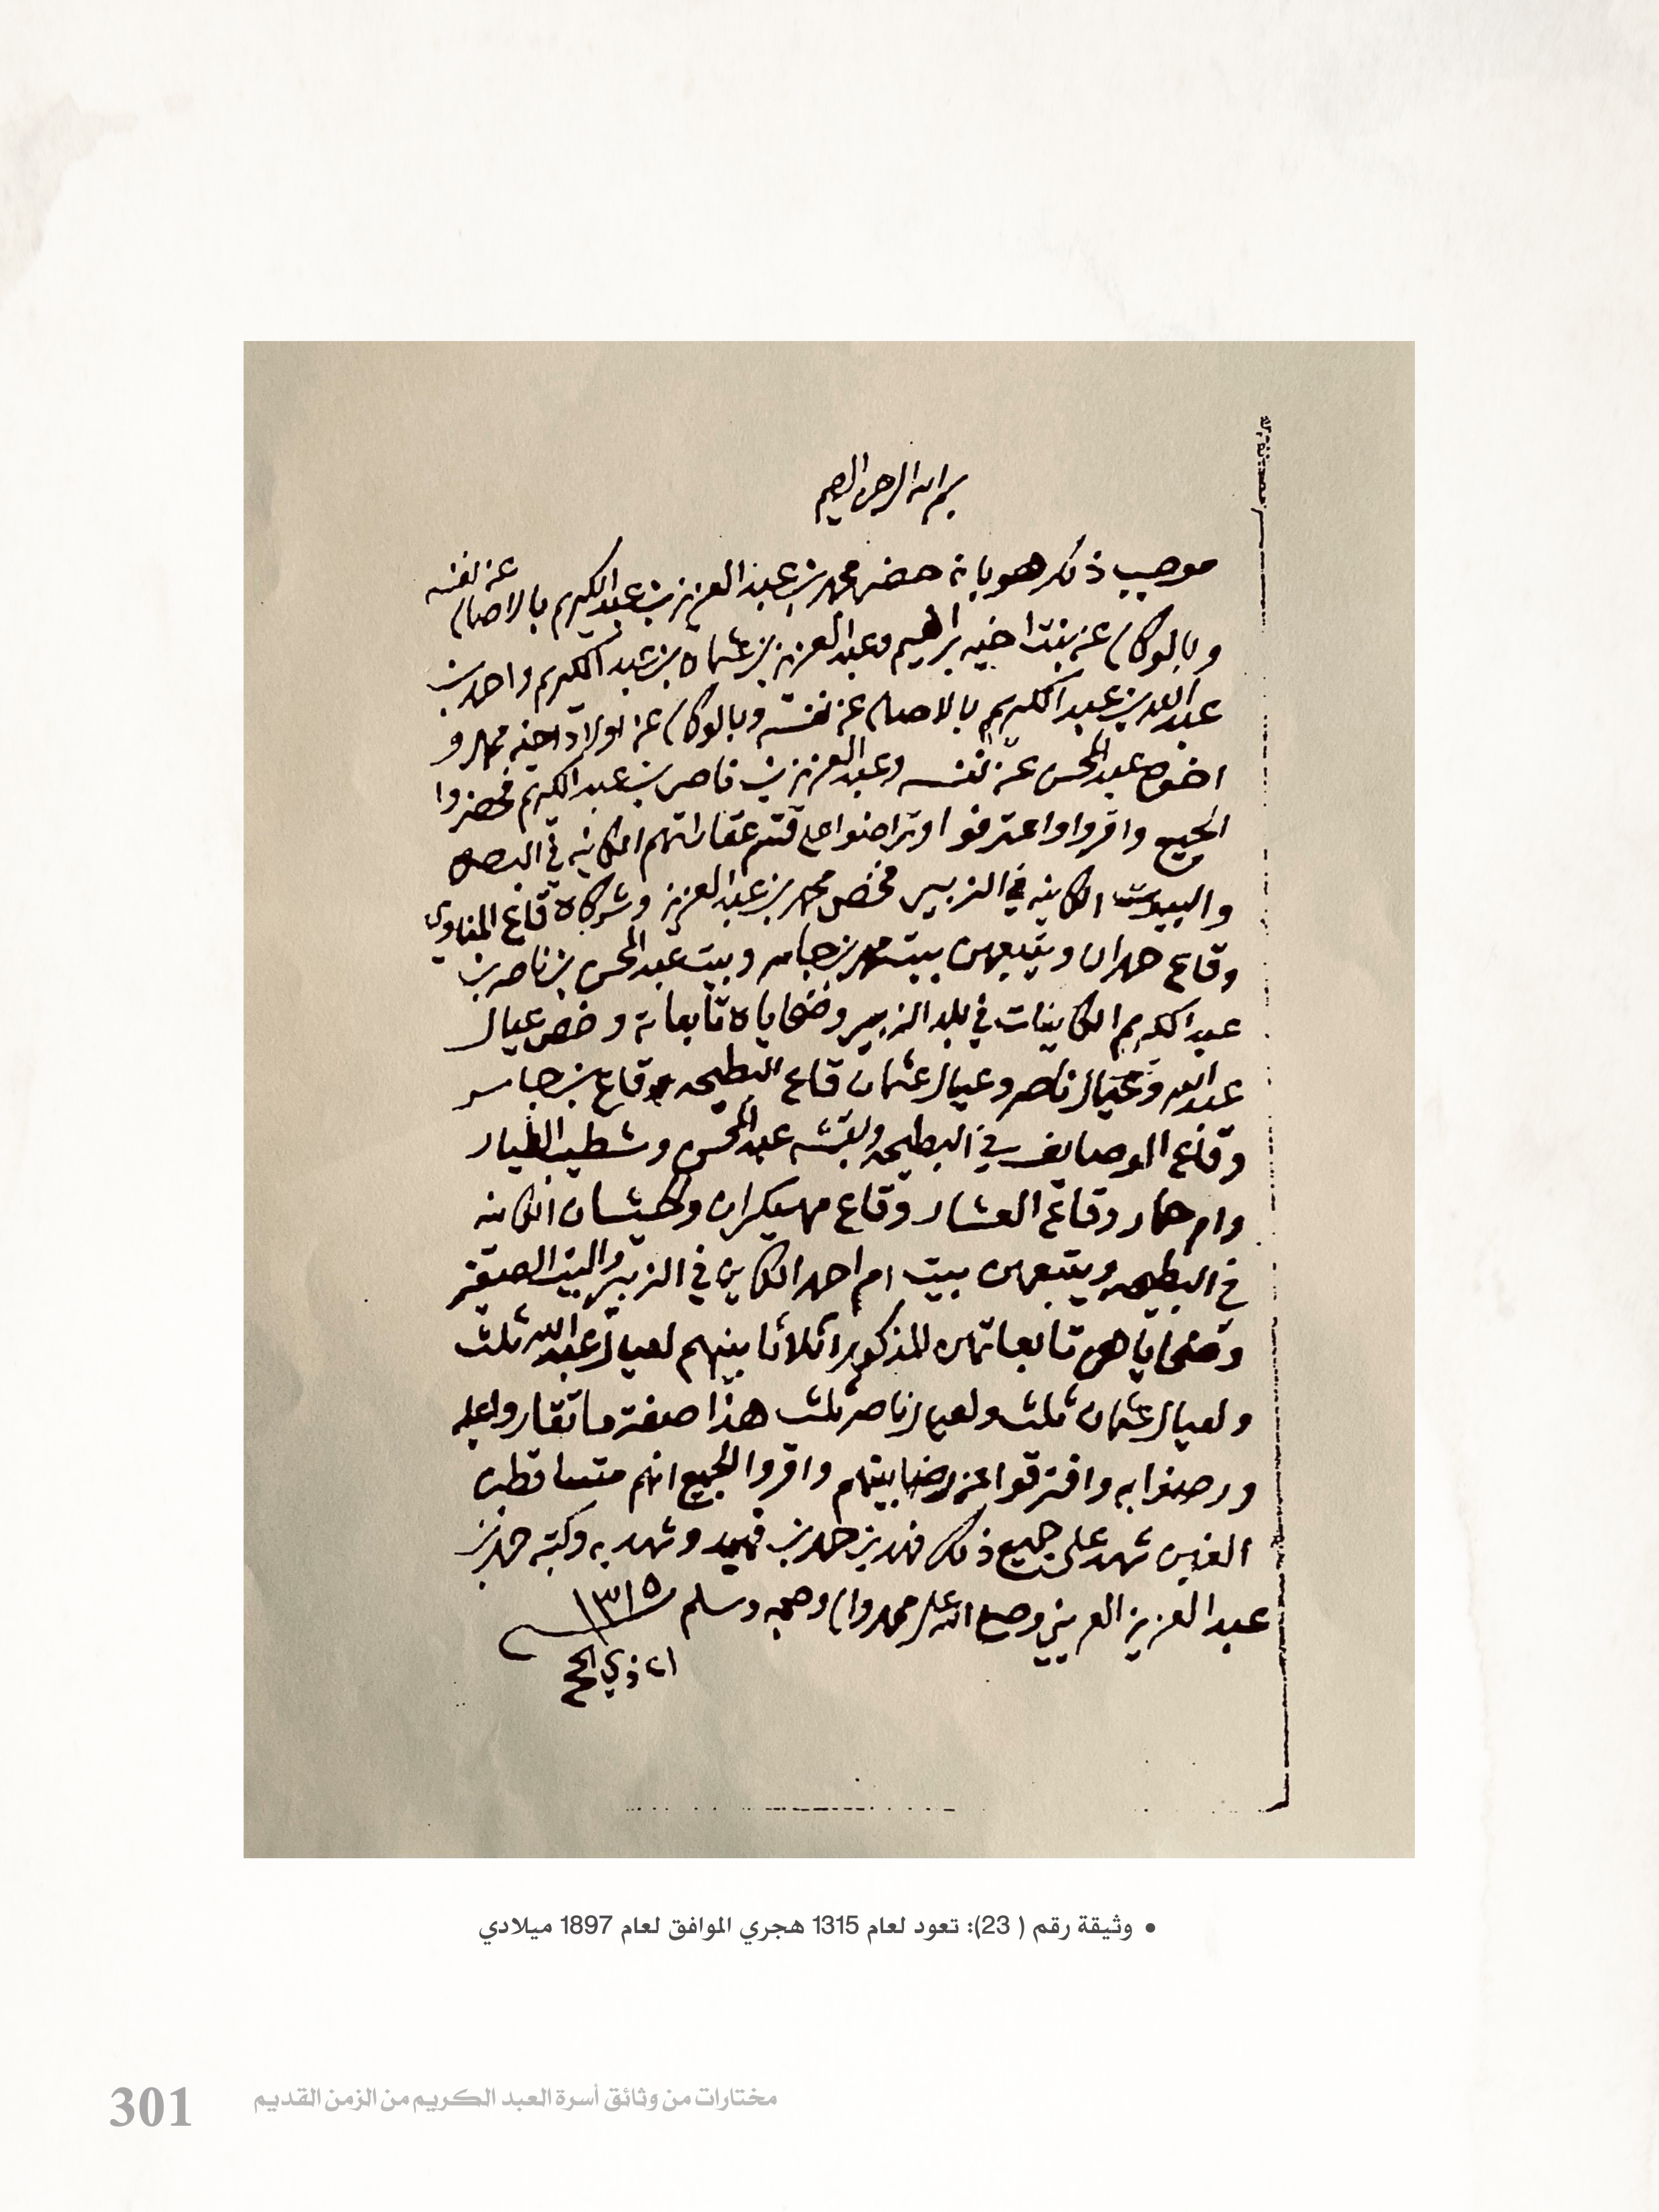 بسم الله الرحمن الرحيم
موجب ذكر هو بانه حضر محمد بن عبد العزيز بن عبد الكريم بالاصالة عن نفسه
وبالوكالة عن بنت اخيه براهيم وعبد العزيز بن عثمان بن عبد الكريم واحمد بن
عبد الله بن عبد الكريم بالاصالة عن نفسه وبالوكالة عن اولاد اخيه محمد و
اخوه عبد المحسن عن نفسه وعبد العزيز بن ناصر بن عبد الكريم فحضروا
الجميع واقروا واعترفوا وتراضوا على قسم عقاراتهم الكاينه في البصره
والبيوت الكاينه في الزبير فخص محمد بن عبد العزيز وشركاه قاع المناوي
وقاع حمدان ويتبعهن بيت محمد بن جاسر وبيت عبد المحسن بن ناصر بن
عبد الكريم الكاينات في بلد الزبير وضحاياه تابعاته وخص عيال
عبد الله وعيال ناصر وعيال عثمان قاع البطيحه وقاع بن جاسر
وقاع الوصايف في البطيحه وعبد المحسن وشطيب الطيار
وام حمار وقاع العشار وقاع مهيكران الكاينه
في البطيحه ويتبعهن بيت ام احمد الكاين في الزبير والبيت الصغير
وضحاياهن تابعاتهن للمذكورين اثلاثا بينهم لعيال عبد الله ثلث
ولعيال عثمان ثلث ولعيال ناصر ثلث هذا صفة ما تقاروا عليه
ورضوا به وافترقوا عن رضا بينهم واقروا الجميع انهم متساقطين
الغبن شهد على جميع ذلك فهد بن حمد بن فهيد وشهد به وكتبه حمد بن
عبد العزيز العريني وصلى الله على محمد واله وصحبه وسلم ١٣١٥
ذي الحج
• وثيقة رقم ( 23): تعود لعام 1315 هجري الموافق لعام 1897 ميلادي
مختارات من وثائق أسرة العبد الكريم من الزمن القديم
301